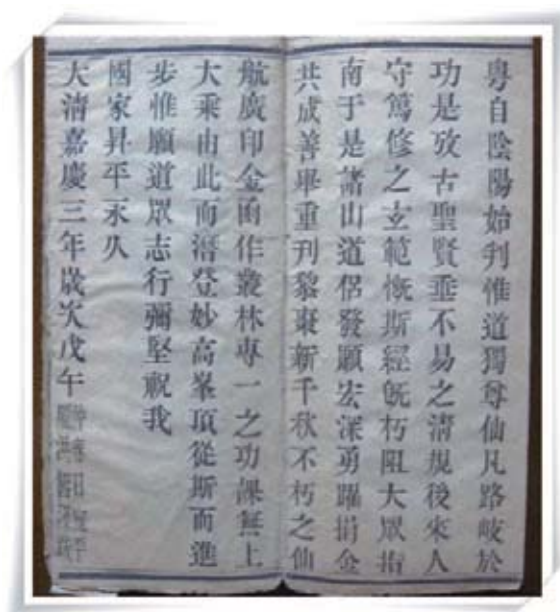 粵自陰陽始判惟道獨尊仙凡路岐於
功是攷古聖賢垂不易之清規後來人
守篤修之玄範慨斯經旣朽阻大眾指
南于是諸山道侶發願宏深勇躍捐金
共成善畢重刊黎棗新千秋不朽之仙
航廣印金函作叢林專一之功課無上
大乘由此而濳登妙高峯頂從斯而進
步惟願道眾志行彌堅祝我
國家昇平永久
大清嘉慶三年歲次戊午